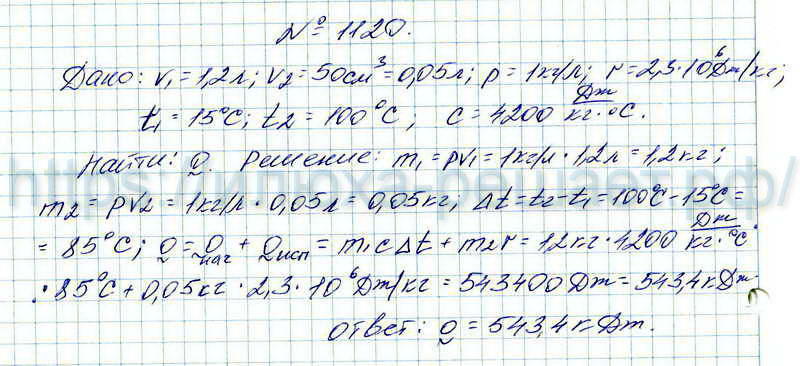 № 1120.
Дано: V₁ = 1,2 л; V₂ = 50 см³ = 0,05 л; ρ = 1 кг/л; r = 2,3·10⁶ Дж/кг;
t₁ = 15°C; t₂ = 100°C; c = 4200 Дж/кг·°C.
Найти: Q. Решение: m₁ = ρV₁ = 1 кг/л · 1,2 л = 1,2 кг;
m₂ = ρV₂ = 1 кг/л · 0,05 л = 0,05 кг; Δt = t₂ - t₁ = 100°C - 15°C =
= 85°C; Q = Qнаг + Qисп = m₁cΔt + m₂r = 1,2 кг · 4200 Дж/кг·°C ·
· 85°C + 0,05 кг · 2,3 · 10⁶ Дж/кг = 543400 Дж = 543,4 кДж
Ответ: Q = 543,4 кДж.